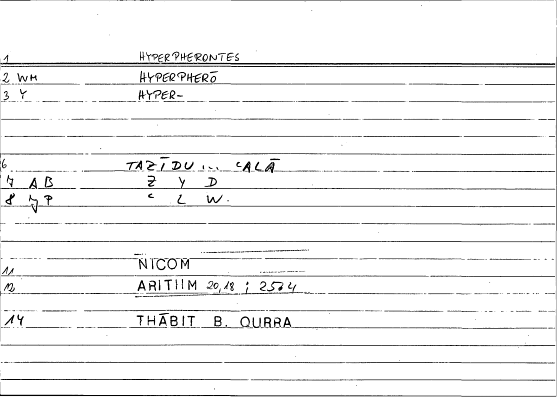 1 HYPERPHERONTES
2 WH HYPERPHERŌ
3 Y HYPER-
6 TAZĪDU ... ʿALĀ
7 AB Z Y D
8 P ʿ L W.
11 NICOM
12 ARITIIM 20,18 ;
14 THĀBIT B. QURRA